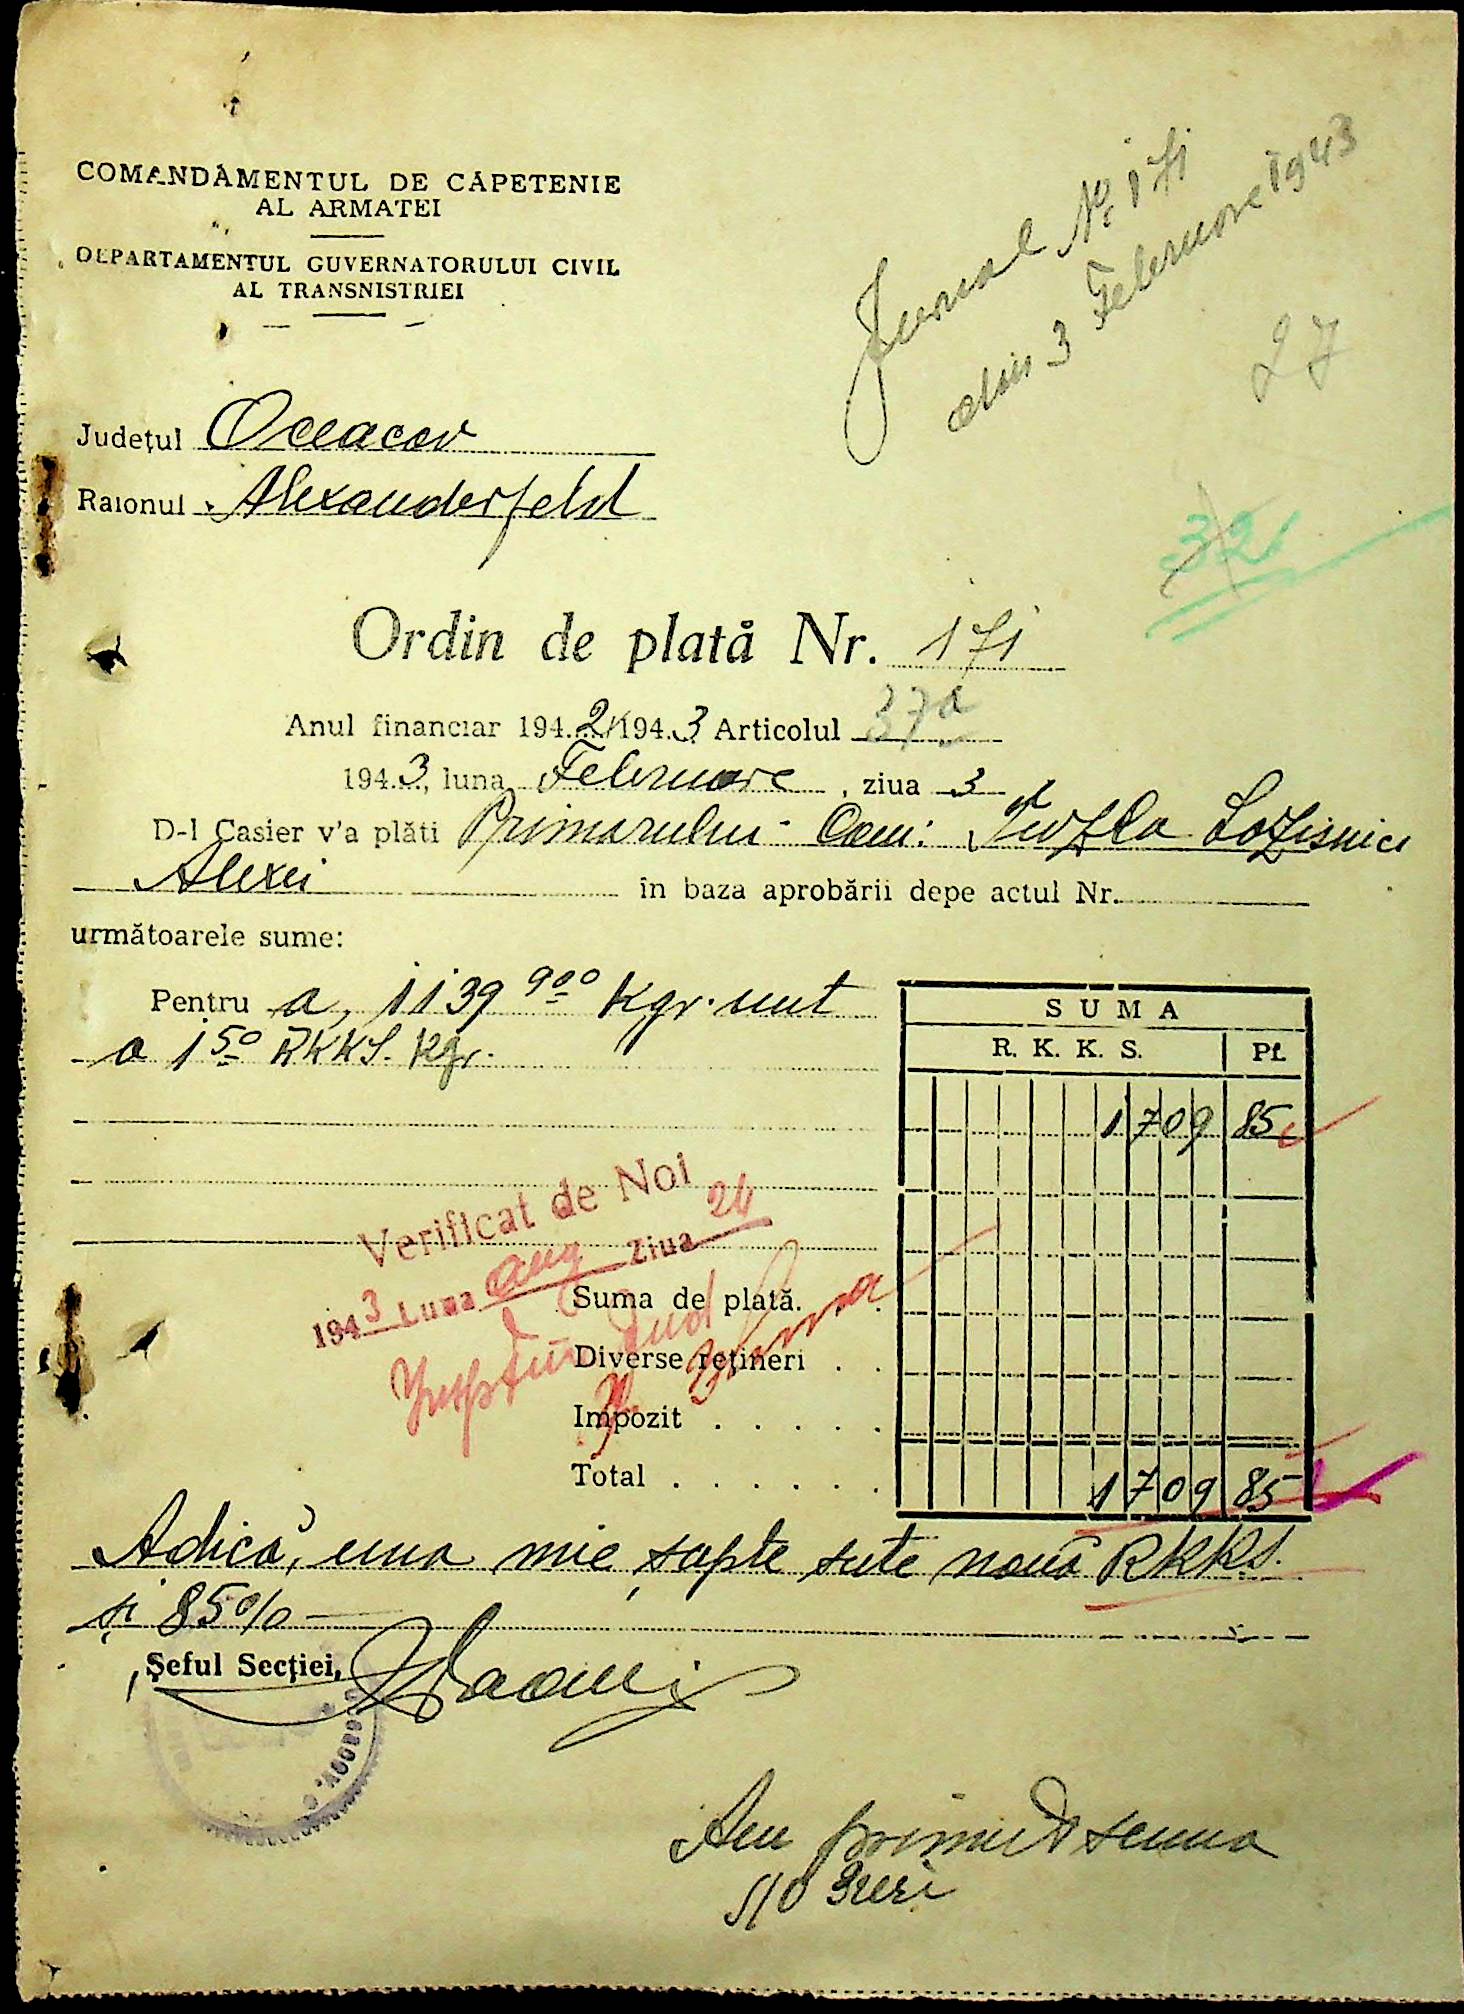 COMANDAMENTUL DE CĂPETENIE
AL ARMATEI
DEPARTAMENTUL GUVERNATORULUI CIVIL
AL TRANSNISTRIEI
Jurnal No. 171
din 3 Februare 1943
27
321
Județul Oceacov
Raionul Alexanderfeld
Ordin de plată Nr. 171
Anul financiar 1942/1943 Articolul 37a
1943, luna Februare, ziua 3
D-l Casier v'a plăti Primarului Com:
Alexei în baza aprobării depe actul Nr.
următoarele sume:
Pentru a, 1139 900 Kgr. unt
a 1 50 RKKS. Kgr.
SUMA
R. K. K. S. Pf.
1709 85
Verificat de Noi
1943 Luna aug Ziua 24
Suma de plată. .
Diverse rețineri . .
Impozit . . . . .
Total . . . . . . 1709 85
Adică, una mie șapte sute nouă RKKS.
și 85%
Șeful Secției,
GUVERN
Am primit suma